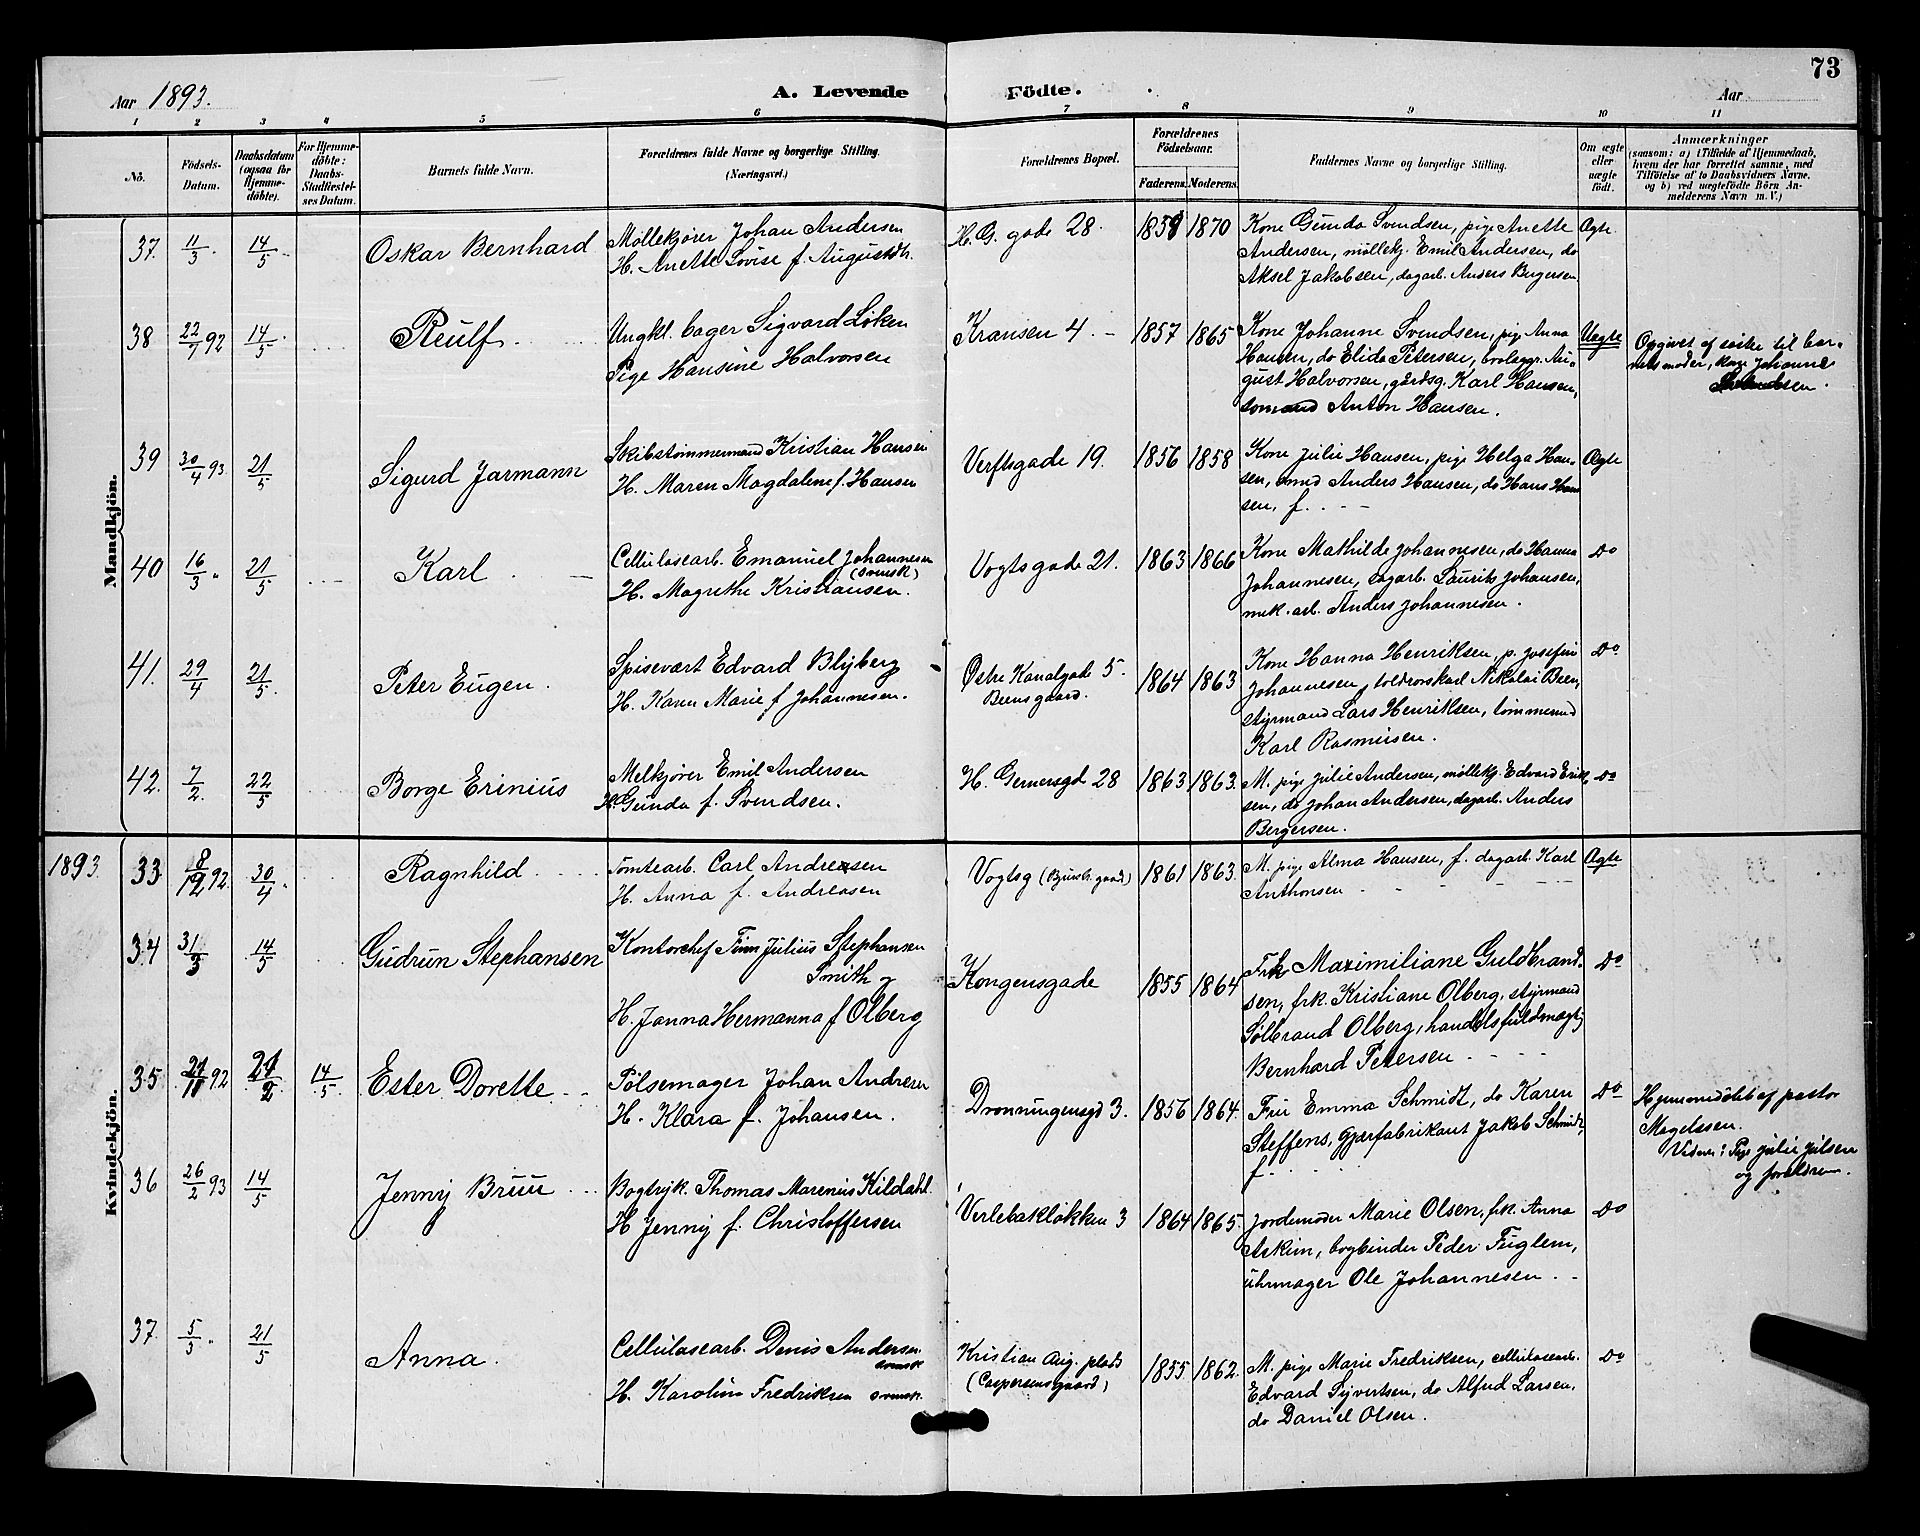 73
Aar 1893.
A. Levende Födte.
Aar
1 2 3 4 5 6 7 8 9 10 11
No.
Födsels-Datum.
Daabsdatum (ogsaa for Hjemmedöbte).
For Hjemmedöbte: Daabs-Stadfæstelses Datum.
Barnets fulde Navn.
Forældrenes fulde Navne og borgerlige Stilling.
(Næringsvei.)
Forældrenes Bopæl.
Forældrenes Födselsaar.
Faderens. Moderens.
Faddernes Navne og borgerlige Stilling.
Om ægte eller uægte födt.
Anmærkninger
(saasom: a) i Tilfælde af Hjemmedaab, hvem der har forrettet samme, med Tilföielse af to Daabsvidners Navne, og b) ved uægtefödte Börn Anmelderens Navn m. V.)
Mandkjön.
37. 11/3 14/5 Oskar Bernhard
Møllekjører Johan Andersen
H. Anette Lovise f. Augustdtr.
H. G. gade 28. 1859 1870
Kone Gunda Svendsen, pige Anette
Andersen, møllekj. Emil Andersen, do
Aksel Jakobsen, dagarb. Anders Bergersen
Ægte
38 22/7 92 14/5 Reulf
Ungkl. bager Sigvard Løken
Pige Hansine Halvorsen
Kransen 4. 1857 1865
Kone Johanne Svendsen, pige Anna
Hansen, do Elida Petersen, brolæggr. Au-
gust Halvorsen, gårdsg. Karl Hansen,
sømand Anton Hansen.
Uægte
Opgivet af søster til bar-
nets moder, kone Johanne
39 30/4 93. 21/5 Sigurd Jarmann
Skibstømmermand Kristian Hansen
H. Maren Magdalene f. Hansen
Verftsgade 19. 1856 1858
Kone Julie Hansen, pige Helga Han-
sen, Anders Hansen, do Hans Han
sen, f.
Ægte
40 16/3 " 21/5 Karl
Cellulosearb. Emanuel Johannesen
(svensk)
H. Magrethe Kristiansen.
Vogtsgade 21. 1863 1866
Kone Mathilde Johannesen, do Hanna
Johannesen, dagarb. Laurits Johansen,
mek. arb. Anders Johannesen.
Do
41. 29/4 21/5 Peter Eugen.
Spisevært Edvard Blyberg
H. Karen Marie f Johannesen.
Østre Kanalgade 5.
Beensgaard.
1864 1863
Kone Hanna Henriksen, p. Josefin
Johannesen, toldrorskarl Nikolai Been,
styrmand Lars Henriksen, tømmermd
Karl Rasmusen.
Do
42. 7/2. 22/5 Borge Erinius
Melkjører Emil Andersen
H. Gunda f. Svendsen.
H. Gernersgd 28 1863 1863.
M. pige Julie Andersen, møllekj. Edvard Erik-
sen, do Johan Andersen, dagarb. Anders
Bergersen.
Do
1893.
Kvindekjön.
33. 8/12 92 30/4. Ragnhild
Tomtearb. Carl Andresen
H. Anna f. Andreasen
Vogtsg 1861 1863.
M. pige Alma Hansen, f. dagarb. Karl
Anthonsen
Ægte
34 31/3 14/5 Gudrun Stephansen
Kontorchef Finn Julius Stephansen
Smith og
H. Janna Hermanna f Olberg
Kongensgade 1855 1864
Frk Maximiliane Guldbrand-
sen, frk. Kristiane Olberg, styrmand
Sølbrand Olberg, handelsfuldmægtig
Bernhard Petersen
Do
35 21/11 92 21/2 14/5 Ester Dorette
Pølsemager Johan Andresen
H. Klara f. Johansen.
Dronningensgd 3. 1856 1864.
Fru Emma Schmidt, do Karen
Steffens, gjærfabrikant Jakob Schmidt,
f.
Do
Hjemmedøbt af pastor
Magelssen.
Vidner: Pige Julie Julsen
og forældrene.
36 26/2 93 14/5 Jenny Bruu
Bogtryk. Thomas Marenius Kildahl.
H Jenny f. Christoffersen
Verlebakløkken 3 1864 1865.
Jordemoder Marie Olsen, frk. Anna
Askim, bogbinder Peder Fuglem,
uhrmager Ole Johannesen.
Do
37. 5/3 " 21/5 Anna.
Cellulosearb. Denis Andersen
svensk
H. Karolin Fredriksen svensk.
Kristian Aug. plads
(Caspersensgaard)
1855 1862.
M. pige Marie Fredriksen, cellulosearb.
Edvard Syvertsen, do Alfred Larsen,
do Daniel Olsen.
Do